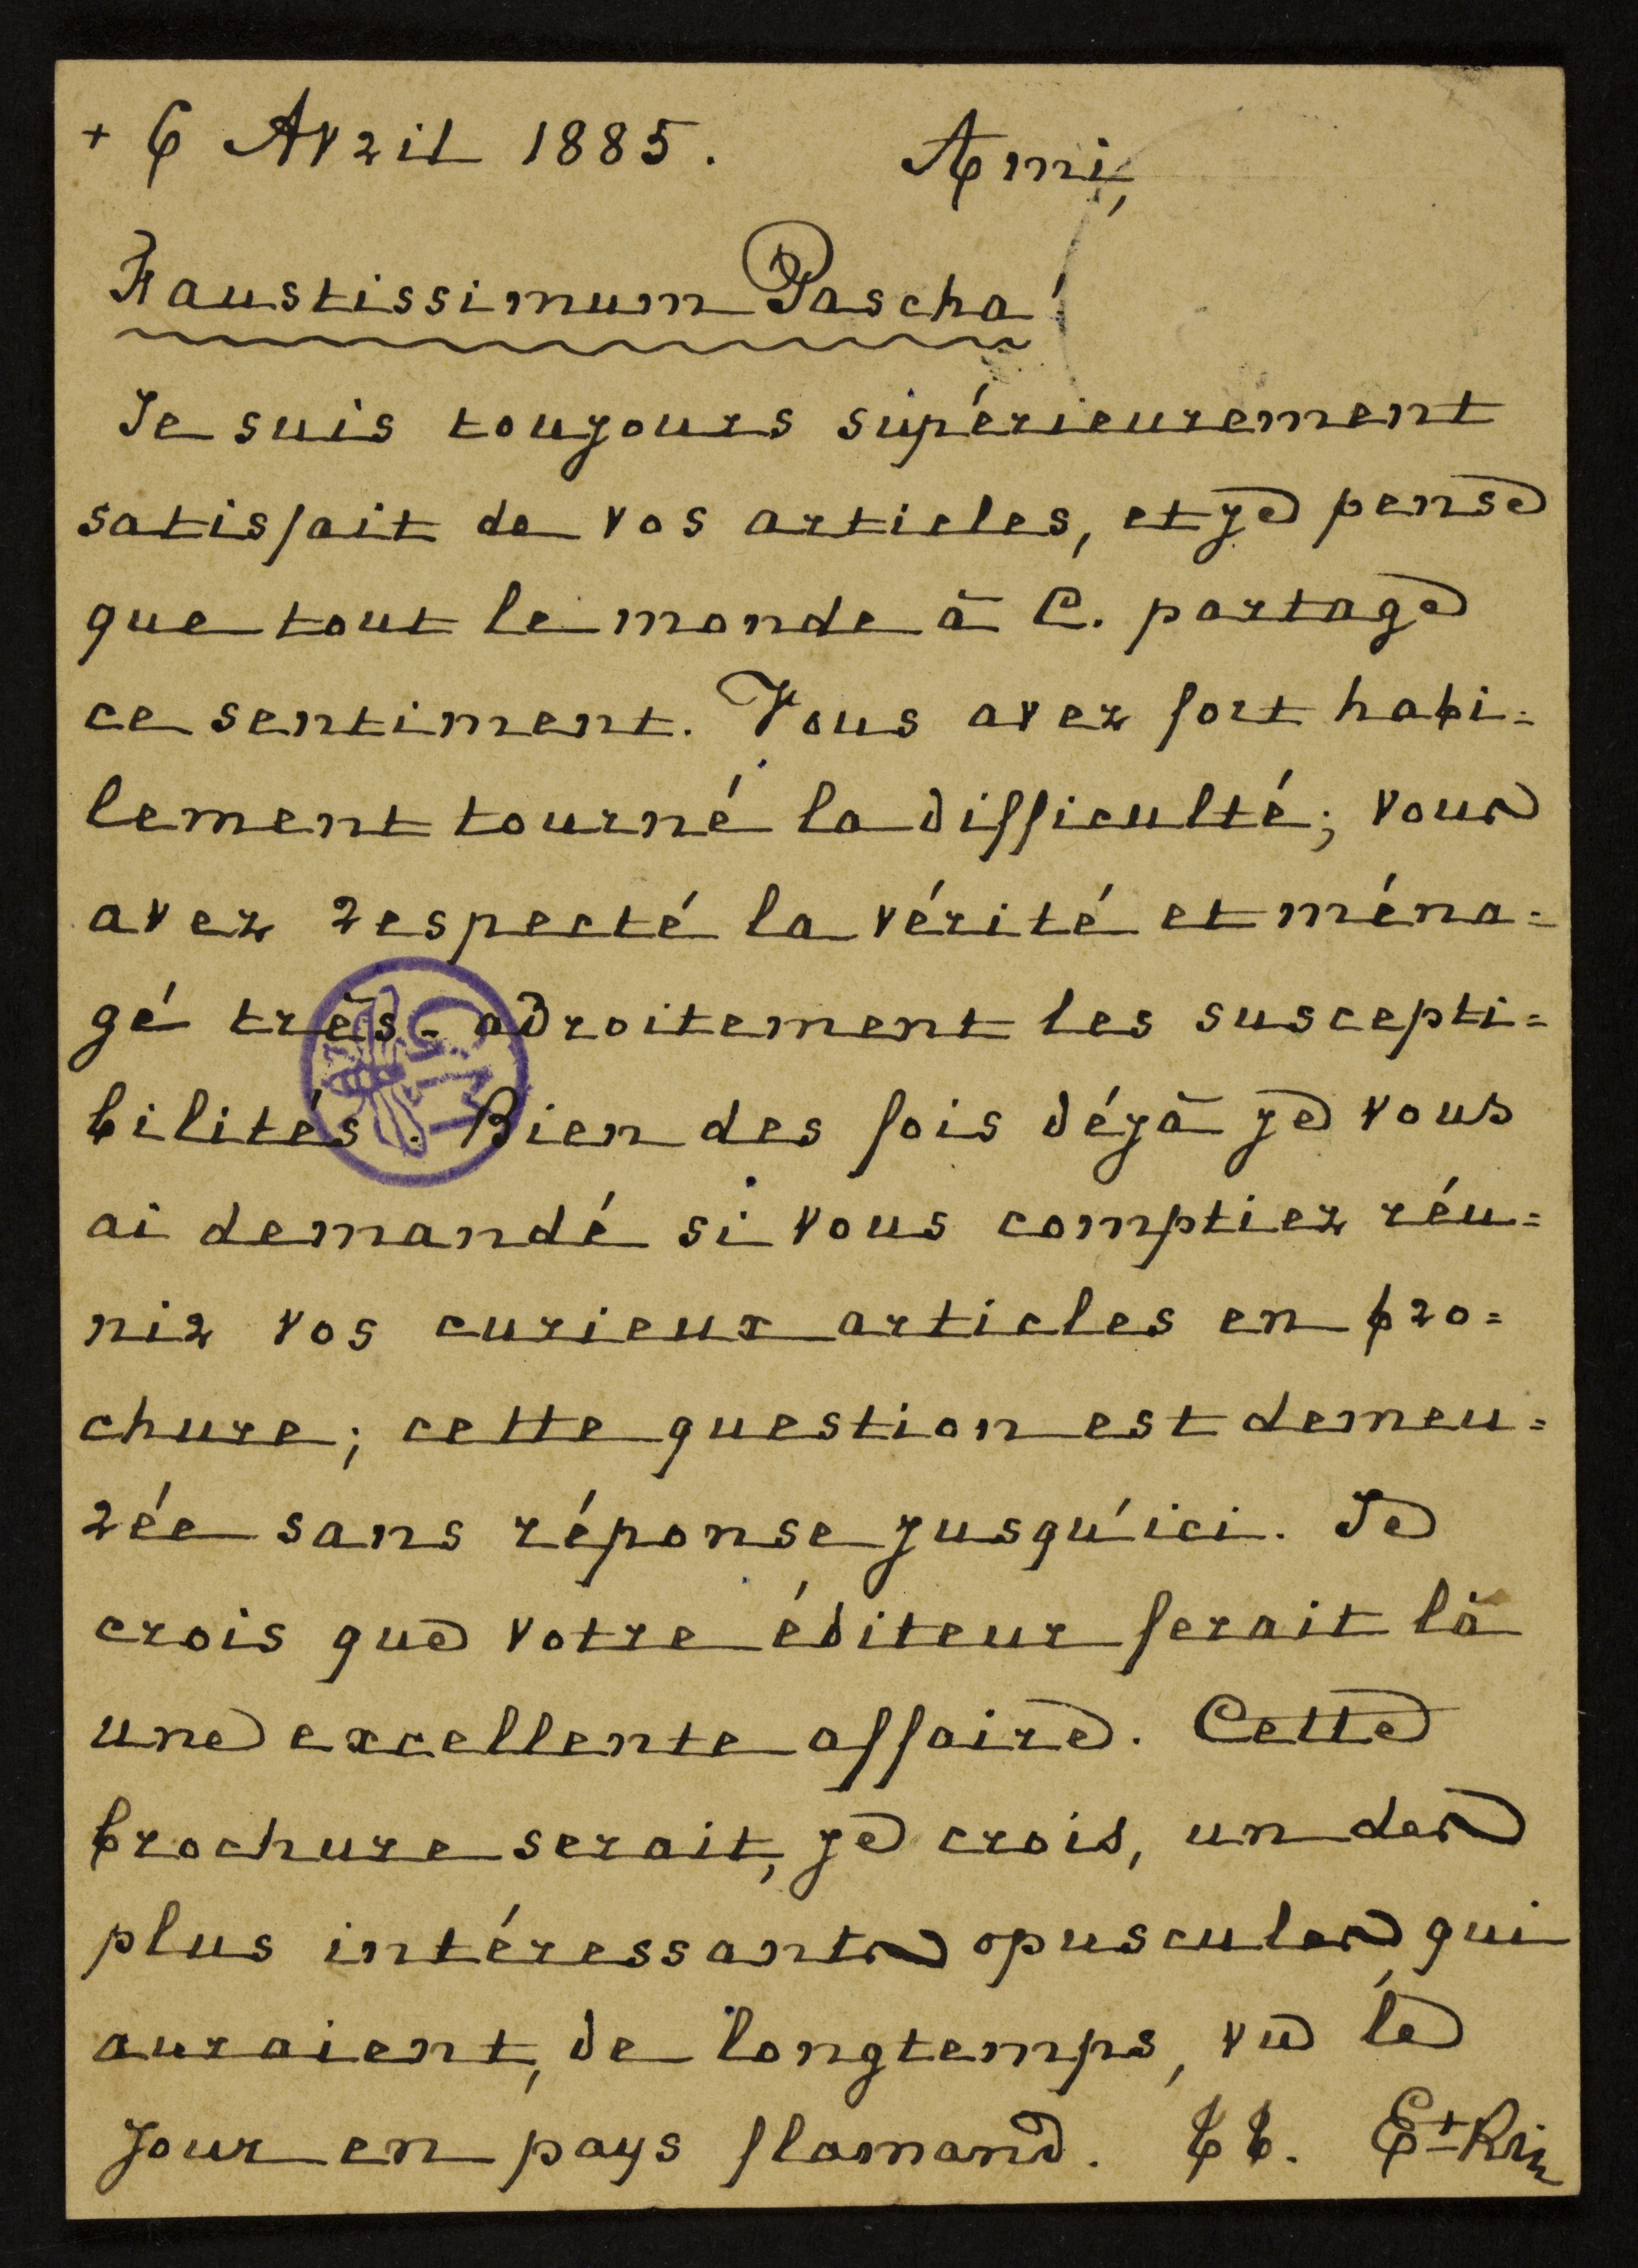 + 6 Avril 1885. Ami,
Faustissimum Pascha!
Je suis toujours supérieurement
satisfait de vos articles, et je pense
que tout le monde à C. partage
ce sentiment. Vous avez fort habi=
lement tourné la difficulté; vous
avez respecté la vérité et ména=
gé très-adroitement les suscepti=
bilités. Bien des fois déjà je vous
ai demandé si vous comptiez réu=
nir vos curieux articles en bro=
chure; cette question est demeu=
rée sans réponse jusqu'ici. Je
crois que votre éditeur ferait là
une excellente affaire. Cette
brochure serait, je crois, un des
plus intéressants opuscules qui
auraient, de longtemps, vu le
jour en pays flamand. tt.